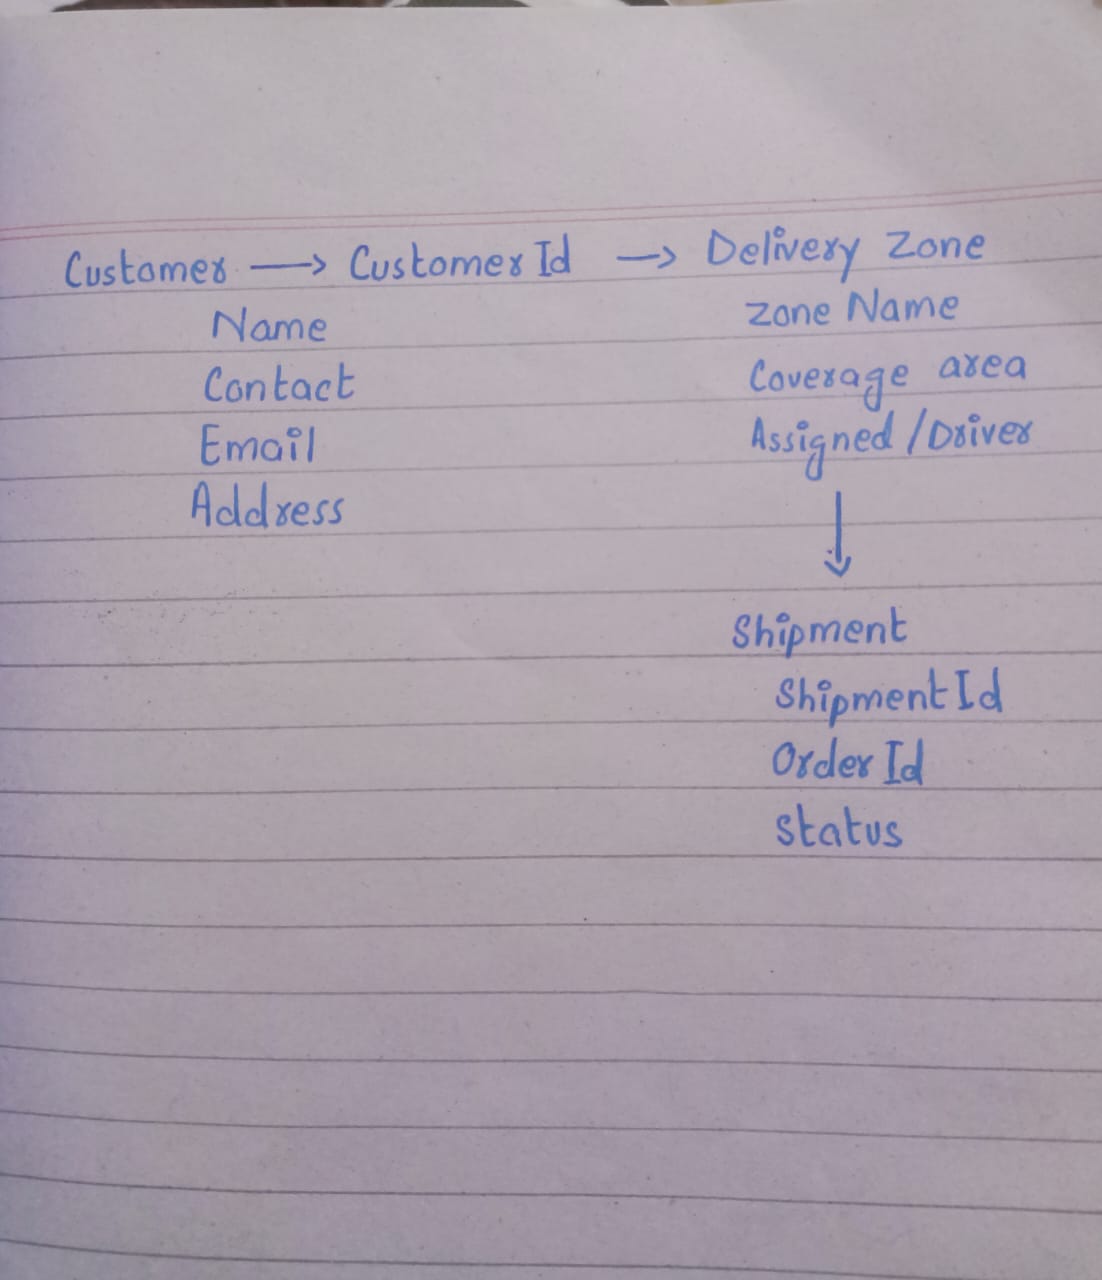 Customer → Customer Id → Delivery Zone
Name
Contact
Email
Address
Zone Name
Coverage area
Assigned / Driver
↓
Shipment
Shipment Id
Order Id
Status